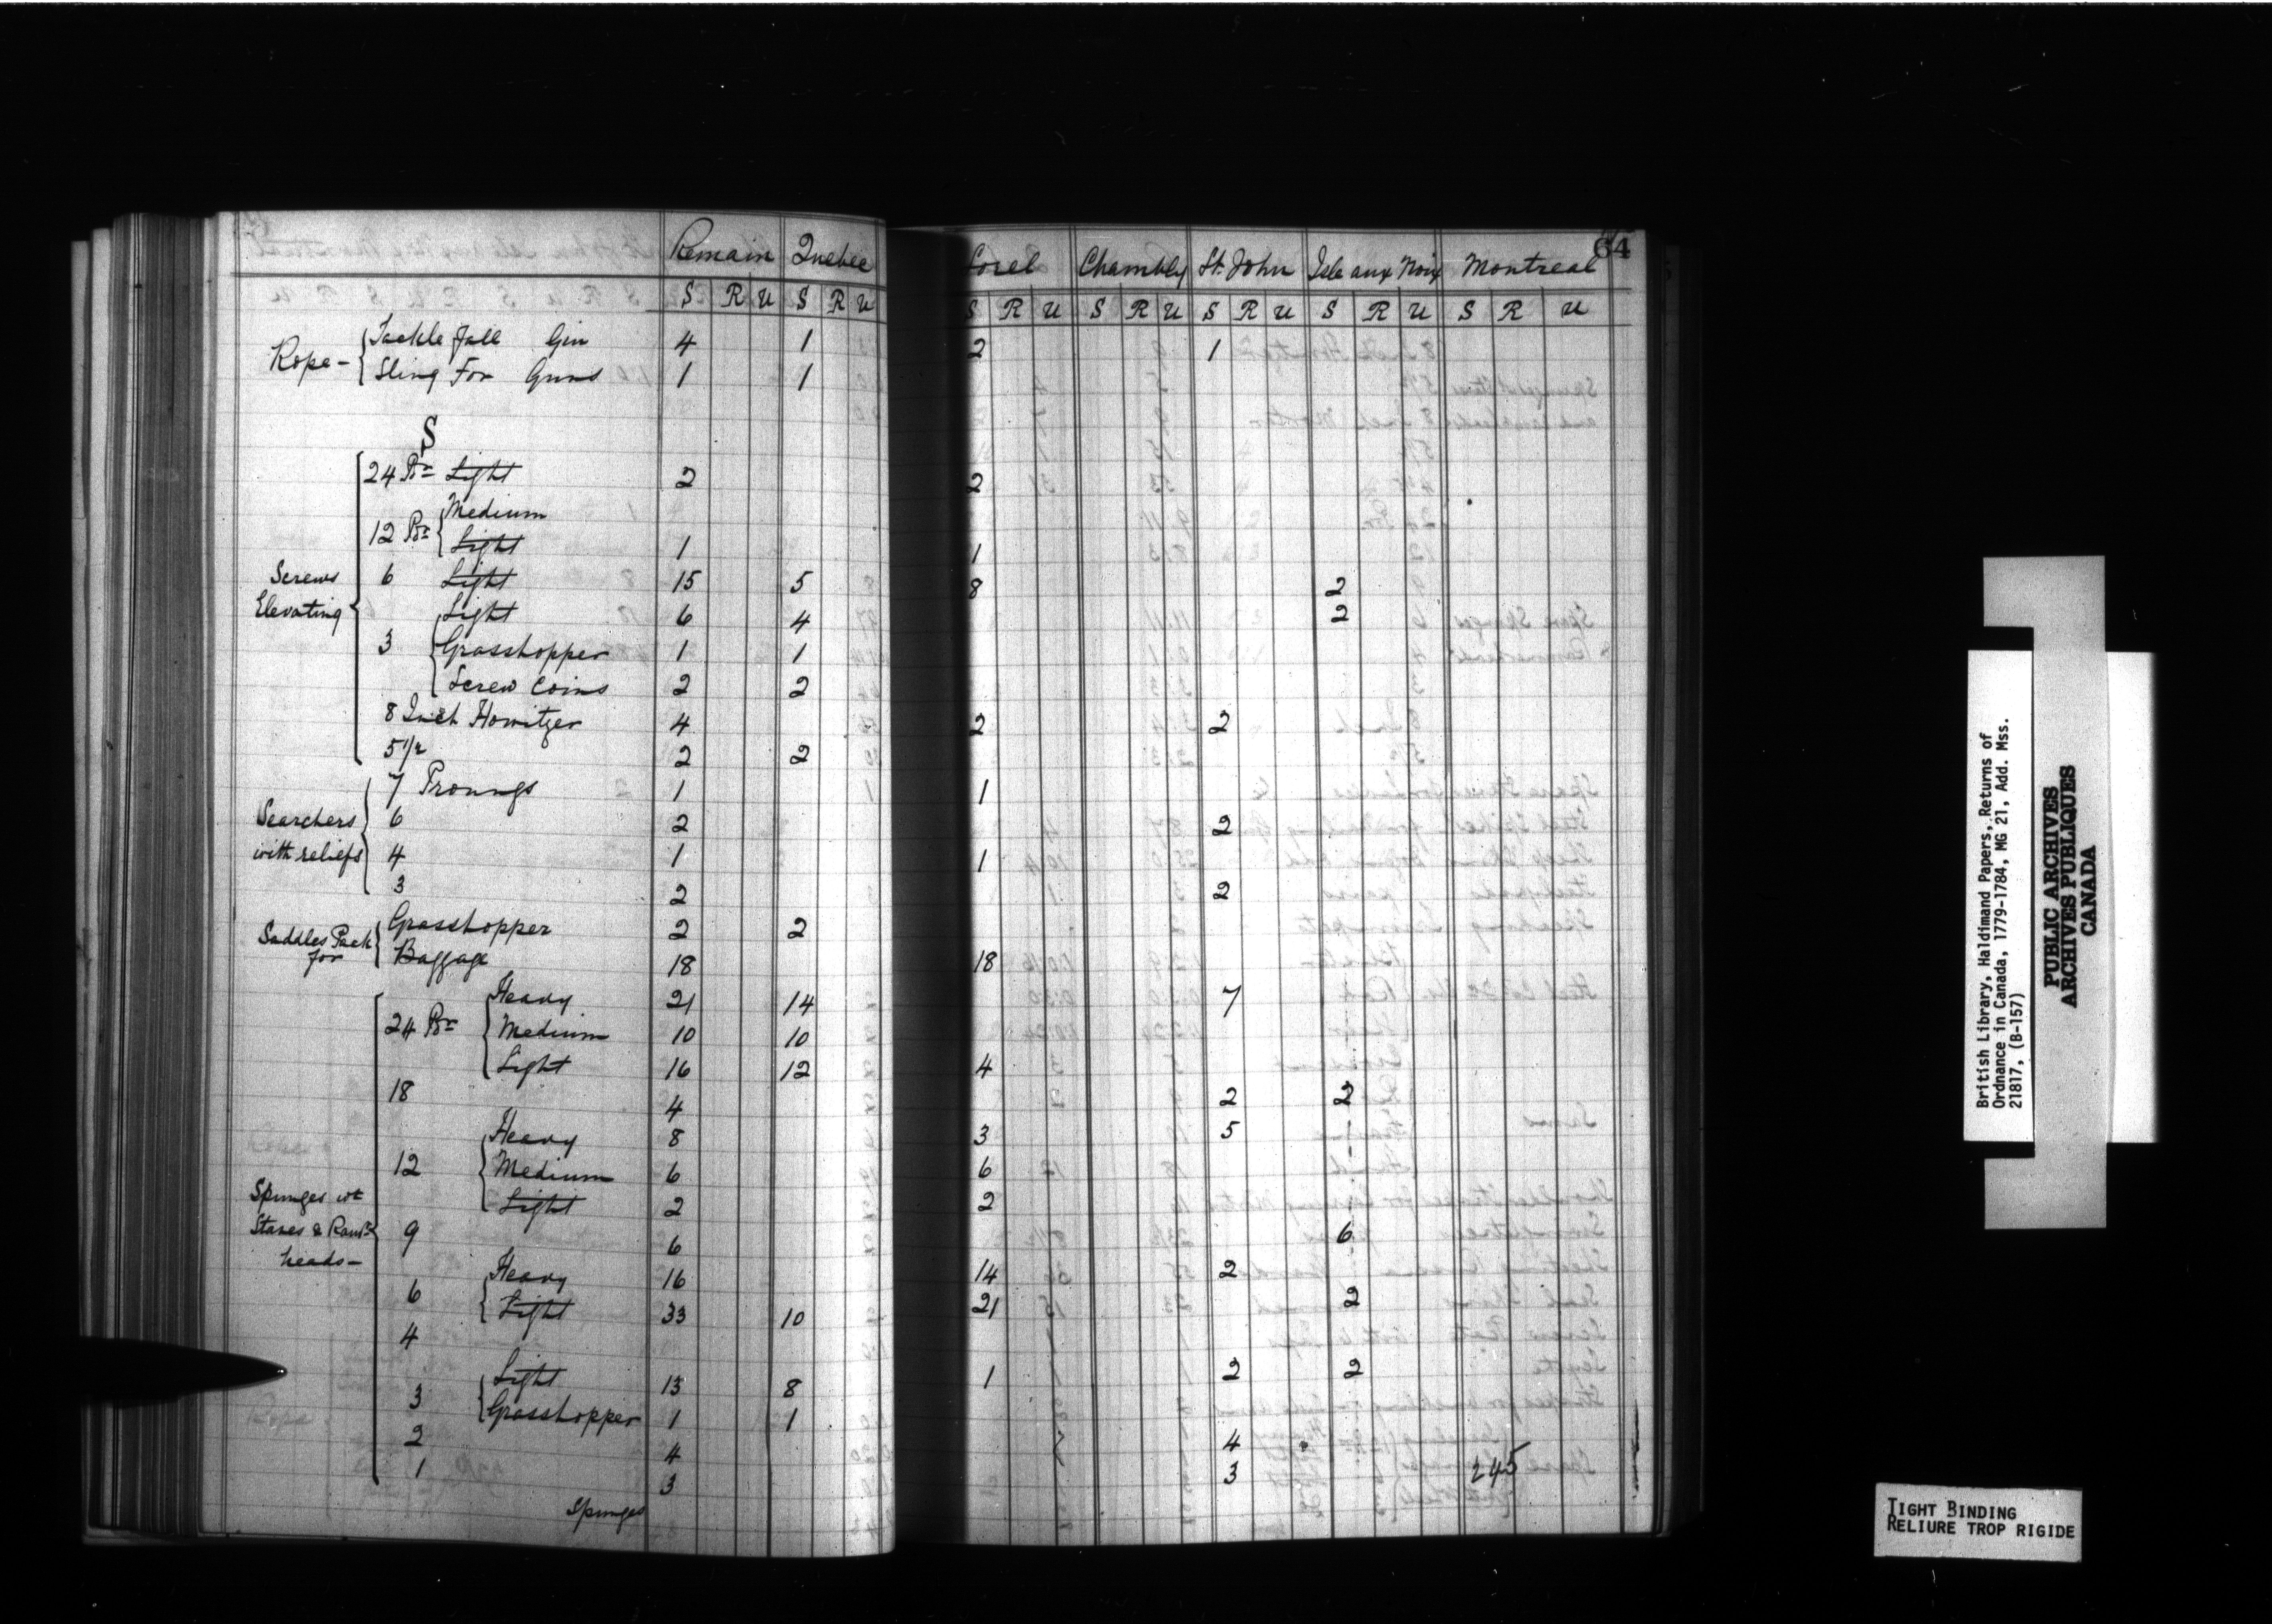 Remain Quebec Sorel Chambly St. John Isle aux Noix Montreal 64
S R U S R U S R U S R U S R U S R U S R U
Rope - Tackle Fall Gin 4 1 2 1
Sling For Guns 1 1
S
Screws Elevating 24 Pr Light 2 2
12 Pr Medium
Light 1 1
6 Light 15 5 8 2
3 Light 6 4 2
Grasshopper 1 1
Screw Coins 2 2
8 Inch Howitzer 4 2 2
5 1/2 2 2
Searchers with reliefs 7 Proungs 1 1
6 2 2
4 1 1
3 2 2
Saddles Pack for Grasshopper 2 2
Baggage 18 18
Spunges wt Staves & Ramr heads - 24 Pr Heavy 21 14 7
Medium 10 10
Light 16 12 4
18 4 2 2
12 Heavy 8 3 5
Medium 6 6
Light 2 2
9 6 6
6 Heavy 16 14 2
Light 33 10 21 2
4
3 Light 13 8 1 2 2
Grasshopper 1 1
2 4 4
1 3 3 245
Spunges
British Library, Haldimand Papers, Returns of
Ordnance in Canada, 1779-1784, MG 21, Add. Mss.
21817, (B-157)
PUBLIC ARCHIVES
ARCHIVES PUBLIQUES
CANADA
TIGHT BINDING
RELIURE TROP RIGIDE